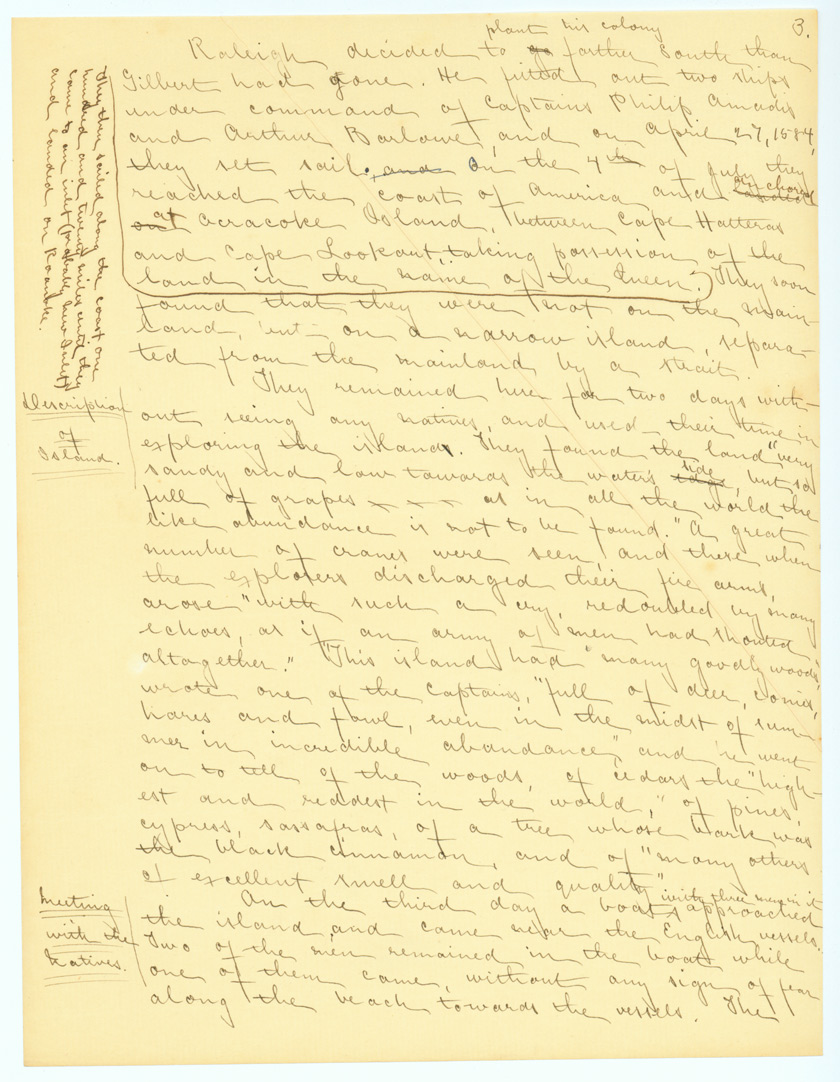 3.
plant his colony
Raleigh decided to go farther south than
Gilbert had gone. He fitted out two ships
under command of Captains Philip Amadis
and Arthur Barlowe, and on April 27, 1584,
they set sail; and On the 4th of July they
reached the coast of America and landed anchored
on at Ocracoke Island, between Cape Hatteras
and Cape Lookout, taking possession of the
land in the name of the Queen. They soon
found that they were not on the main-
land, but on a narrow island, separa-
ted from the mainland by a strait.
They then sailed along the coast one
hundred and twenty miles until they
came to an inlet (probably New Inlet)
and landed on Roanoke.
They remained here for two days with-
out seeing any natives, and used their time in
exploring the island. They found the land "very
sandy and low towards the water's side, but so
full of grapes - - - as in all the world the
like abundance is not to be found." A great
number of cranes were seen, and these when
the explorers discharged their fire arms,
arose "with such a cry, redoubled by many
echoes, as if an army of men had shouted
altogether." "This island had "many goodly woods,"
wrote one of the captains, "full of deer, conies,
hares and fowl, even in the midst of sum-
mer in incredible abundance," and he went
on to tell of the woods, of cedars the "high-
est and reddest in the world," of pines,
cypress, sassafras, of a tree whose bark was
the black cinnamon, and of "many others
of excellent smell and quality"
Description
of
Island.
with three men in it
On the third day a boat approached
the island and came near the English vessels.
Two of the men remained in the boat while
one of them came, without any sign of fear
along the beach towards the vessels. The
Meeting
with the
Natives.